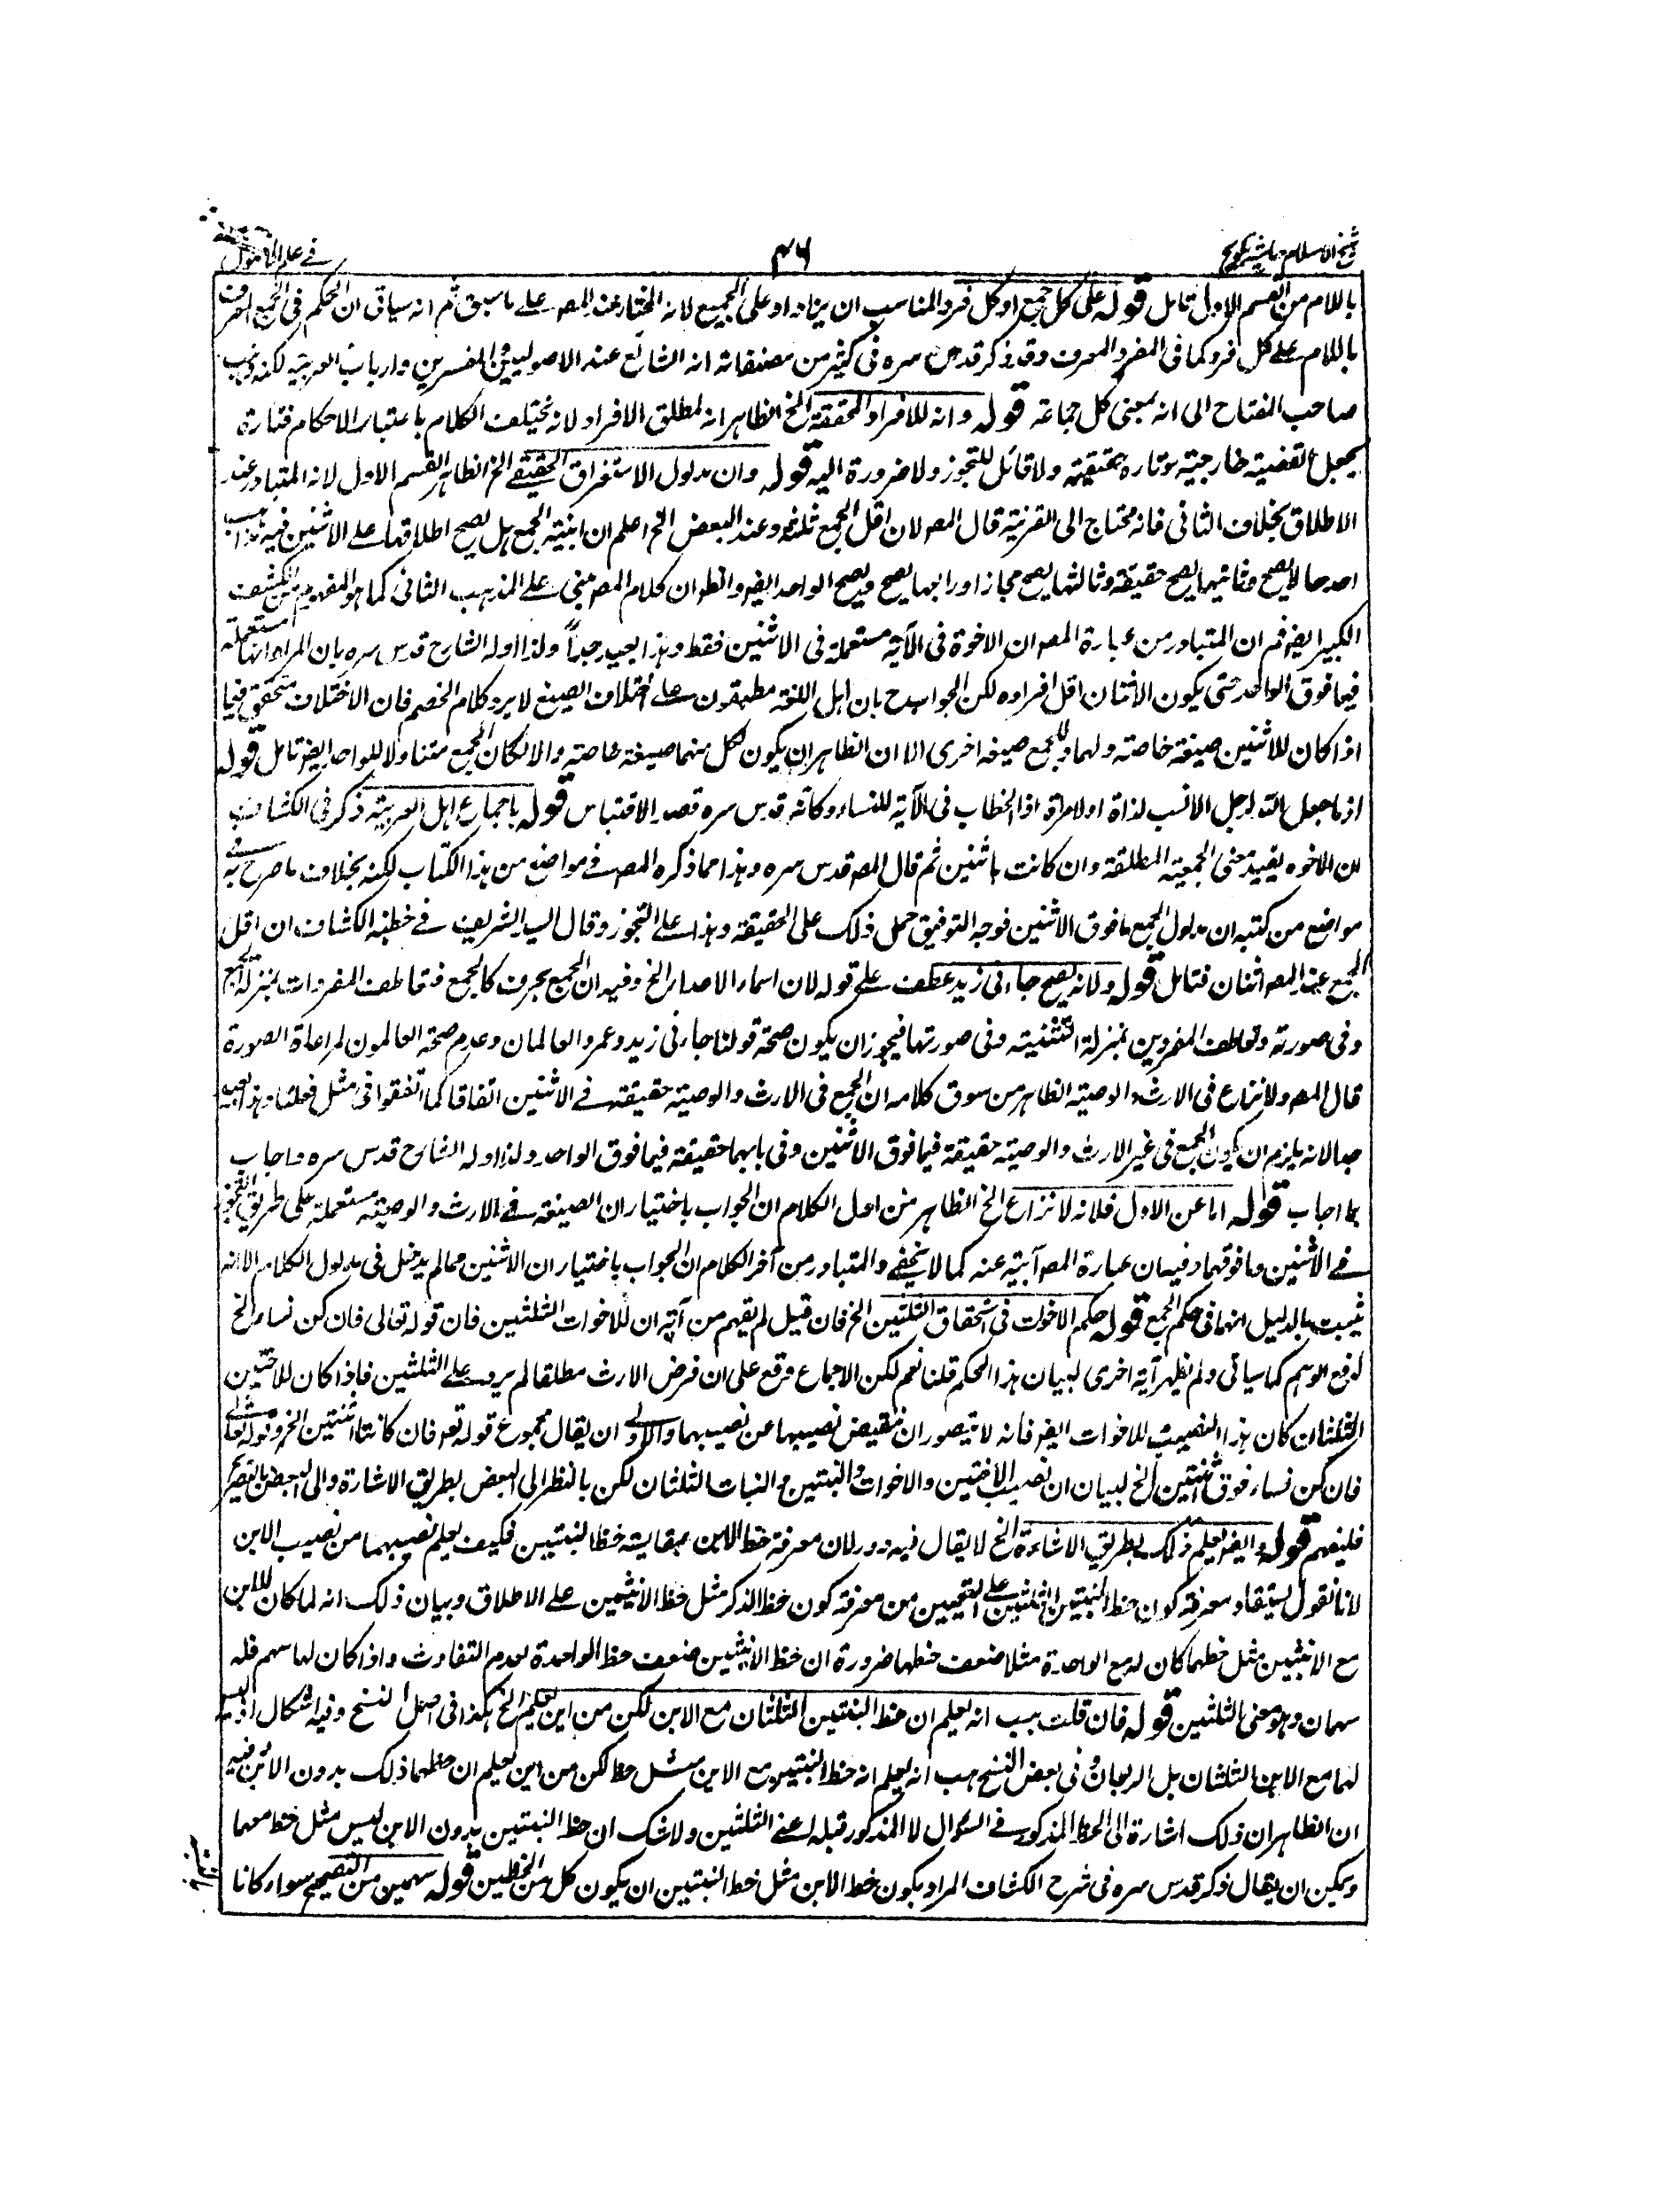 شيخ الاسلام حاشية تلويح
٤٦
في علم الاصول
باللام من القسم الاول تامل قوله على كل جمع او كل فرد المناسب ان يزاد او على الجميع لانه المختار عند المصـ على ما سبق ثم انه سياتى ان الحكم فى الجمع المعرف
باللام على كل فرد كما فى المفرد المعرف وقد ذكر قدس سره فى كثير من مصنفاته انه الشائع عند الاصوليين والمفسرين وارباب العربية لكنه ذهب
صاحب المفتاح الى انه بمعنى كل جماعة قوله وانه للافراد المحققة الخ الظاهر انه لمطلق الافراد لانه يختلف الكلام باعتبار الاحكام فتارة
يجعل القضية خارجية وتارة حقيقية ولا قائل للتجوز ولا ضرورة اليه قوله وان مدلول الاستغراق الحقيقے الخ الظاهر القسم الاول لانه المتبادر عند
الاطلاق بخلاف الثانى فانه محتاج الى القرينة قال المصـ لان اقل الجمع ثلثة وعند البعض الخ اعلم ان ابنية الجمع هل يصح اطلاقها على الاثنين فيه مذاهب
احدها لا يصح وثانيها يصح حقيقة وثالثها يصح مجازا ورابعها يصح ويصح الواحد ايضـ والظـ ان كلام المصـ مبنى على المذهب الثانى كما هو المفهوم من الكشف
الكبير ايضـ ثم ان المتبادر من عبارة المصـ ان الاخوة فى الآية مستعملة فى الاثنين فقط وهذا بعيد جداً ولذا اوله الشارح قدس سره بان المراد انها مستعملة
فيما فوق الواحد حتى يكون الاثنان اقل افراده لكن الجواب ح بان اهل اللغة مطبقون على اختلاف الصيغ لا يرد كلام الخصم فان الاختلاف متحقق فيما
اذا كان للاثنين صيغة خاصة ولهما وللجمع صيغة اخرى الا ان الظاهر ان يكون لكل منهما صيغة خاصة والا لكان الجمع متناولا للواحد ايضـ تامل قوله
اذ ما جعل الله لرجل الانسب لذاة او لامرأة اذ الخطاب فى الآية للنساء وكأنه قدس سره قصد الاقتباس قوله باجماع اهل العربية ذكر فى الكشاف
ان الاخوة يفيد معنى الجمعية المطلقة وان كانت باثنين ثم قال المصـ قدس سره وهذا مما ذكره المصـ فے مواضع من هذا الكتاب لكنه بخلاف ما صرح به فے
مواضع من كتبه ان مدلول الجمع ما فوق الاثنين فوجه التوفيق حمل ذلك على الحقيقة وهذا على التجوز وقال السيد الشريف فے خطبة الكشاف ان اقل
الجمع عند المصـ اثنان فتامل قوله ولانه يصح جاءنى زيد عطف على قوله لان اسماء الاعداد الخ وفيه ان الجمع بحرف كالجمع فتعاطف المفردات بمنزلة الجمع
وفى صورته وتعاطف المفردين بمنزلة التثنية وفى صورتها فيجوز ان يكون صحة قولنا جاءنى زيد وعمرو العالمان وعدم صحة العالمون لمراعاة الصورة
قال المصـ ولا نزاع فى الارث والوصية الظاهر من سوق كلامه ان الجمع فى الارث والوصية حقيقة فے الاثنين اتفاقا كما اتفقوا فى مثل فعلنا وهذا بعيد
جدا لانه يلزم ان يكون الجمع فى غير الارث والوصية حقيقة فيما فوق الاثنين وفى بابهما حقيقة فيما فوق الواحد ولذا اوله الشارح قدس سره واجاب
بما اجاب قوله اما عن الاول فلانه لا نزاع الخ الظاهر من اول الكلام ان الجواب باختيار ان الصيغة فے الارث والوصية مستعملة على طريق التجوز
فے الاثنين وما فوقهما وفيه ان عبارة المصـ آبية عنه كما لا يخفے والمتبادر من آخر الكلام ان الجواب باختيار ان الاثنين مما لم يدخل فى مدلول الكلام الا انه
ثبت بالدليل انهما فى حكم الجمع قوله حكم الاخوات فى استحقاق الثلثين الخ فان قيل لم يفهم من آية ان للاخوات الثلثين فان قوله تعالى فان كن نساء الخ
لرفع الوهم كما سياتى ولم تظهر آية اخرى لبيان هذا الحكم قلنا نعم لكن الاجماع وقع على ان فرض الارث مطلقا لم يرد على الثلثين فاذا كان للاختين
الثلثان كان هذا النصيب للاخوات ايضـ فانه لا يتصور ان تنقيص نصيبها عن نصيبهما والاولى ان يقال مجموع قوله تعـ فان كانتا اثنتين الخ وقوله تعالى
فان كن نساء فوق اثنتين الخ لبيان ان نصيب الاختين والاخوات والبنتين والبنات الثلثان لكن بالنظر الى البعض بطريق الاشارة والى البعض بالتصريح
فليفهم قوله وايضـ يعلم ذلك بطريق الاشارة الخ لا يقال فيه دور لان معرفة حظ الابن بمقايسة حظ البنتين فكيف يعلم نصيبهما من نصيب الابن
لانا نقول يستفاد معرفة كون حظ البنتين الثلثين على التعيين من معرفة كون حظ الذكر مثل حظ الانثيين على الاطلاق وبيان ذلك انه لما كان للابن
مع الانثيين مثل حظهما كان له مع الواحدة مثلا ضعف حظها ضرورة ان حظ الانثيين ضعف حظ الواحدة لعدم التفاوت واذا كان لها سهم فله
سهمان وهو معنى الثلثين قوله فان قلت هب انه يعلم ان حظ البنتين الثلثان مع الابن لكن من اين يعلم الخ هكذا فى اصل النسخ وفيه اشكال اذ ليس
لهما مع الابن الثلثان بل الربعان وفى بعض النسخ هب انه يعلم انه حظ البنتين مع الابن مثل حظ لكن من اين يعلم ان حظهما ذلك بدون الابن فيه
ان الظاهر ان ذلك اشارة الى الحظ المذكور فے السؤال لا المذكور قبله اعنے الثلثين ولا شك ان حظ البنتين بدون الابن ليس مثل حظ معهما
ويمكن ان يقال ذكر قدس سره فى شرح الكشاف المراد بكون حظ الابن مثل حظ البنتين ان يكون كل من الحظين قوله سهمين من التصحيح سواء كانا